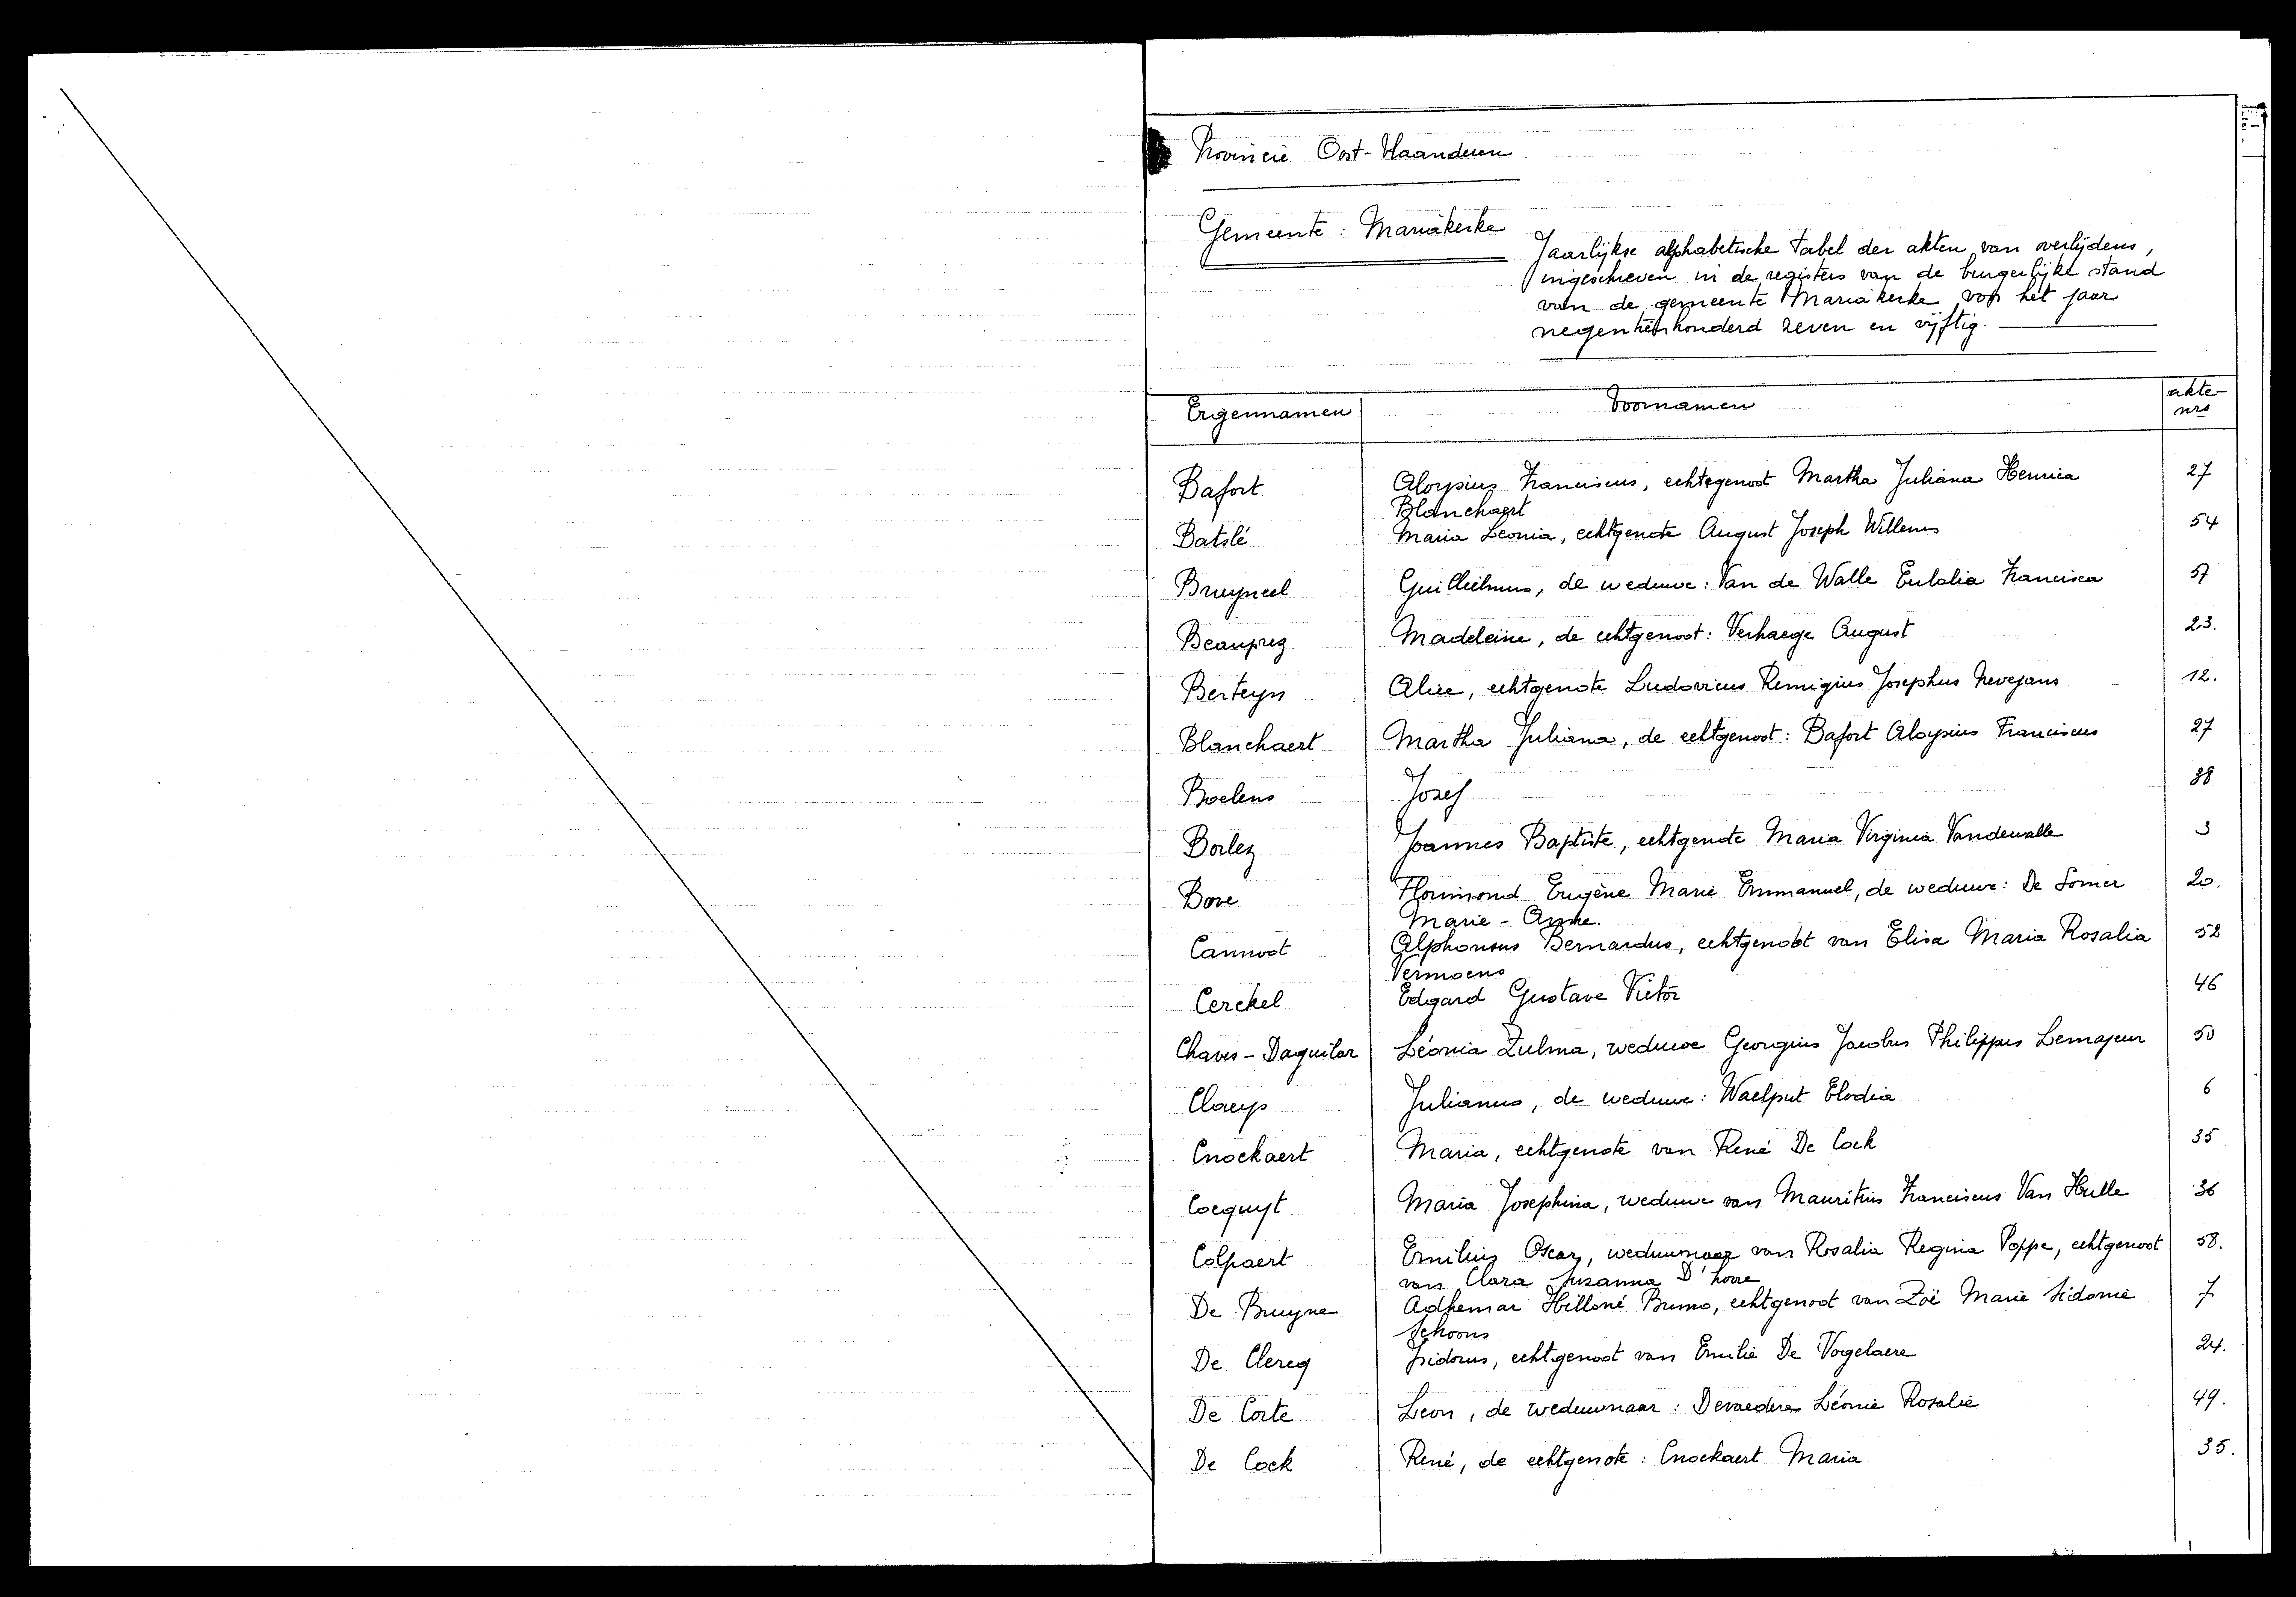 Provincie Oost-Vlaanderen
Gemeente: Mariakerke
Jaarlijkse alphabetische tabel der akten van overlijdens,
ingeschreven in de registers van de burgerlijke stand
van de gemeente Mariakerke voor het jaar
negentienhonderd zeven en vijftig.
Eigennamen Voornamen akte-
nrs
Bafort Aloysius Franciscus, echtegenoot Martha Juliana Henrica 27
Blanchaert
Batslé Maria Leonia, echtgenote August Joseph Willems 54
Bruyneel Guillielmus, de weduwe: Van de Walle Eulalia Francisca 57
Beauprez Madeleine, de echtgenoot: Verhaege August 23.
Berteyn Alice, echtgenote Ludovicus Remigius Josephus Nevejans 12.
Blanchaert Martha Juliana, de echtgenoot: Bafort Aloysius Franciscus 27
Boelens Jozef 38
Borlez Joannes Baptiste, echtgenote Maria Virginia Vandewalle 3
Bove Florimond Eugène Marie Emmanuel, de weduwe: De Somer 20.
Marie-Anne.
Cannoot Alphonsus Bernardus, echtgenoot van Elisa Maria Rosalia 52
Vermoens
Cerckel Edgard Gustave Victor 46
Chaves-Daguilar Léonia Zulma, weduwe Georgius Jacobus Philippus Lemajeur 50
Claeys Julianus, de weduwe: Waelput Elodia 6
Cnockaert Maria, echtgenote van René De Cock 35
Cocquyt Maria Josephina, weduwe van Mauritius Franciscus Van Hulle 36
Colpaert Emilius Oscar, weduwnaar van Rosalia Regina Poppe, echtgenoot 58.
van Clara Suzanna D'hoore
De Bruyne Adhemar Hilloné Bruno, echtgenoot van Zoë Marie Sidonie 7
Schoons
De Clercq Isidorus, echtgenoot van Emilie De Vogelaere 24.
De Corte Leon, de weduwnaar: Devaedere Léonie Rosalie 49.
De Cock René, de echtgenote: Cnockaert Maria 35.